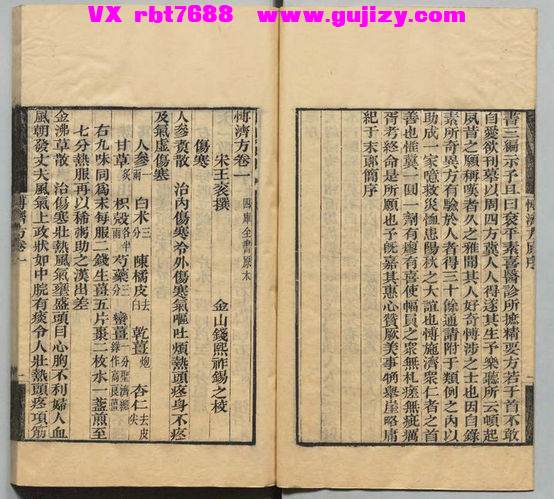 VX rbt7688 www.gujizy.com
書三編示予且曰袞平素喜醫診所摭精要方若干首不敢
自愛欲刊摹以周四方冀人人得遂其生予樂聽所云頓起
夙昔之願稱嘆者久之雅聞其人好奇博涉之士也因自錄
素所奇異方有驗於人者得三十餘通請附于類例之內以
助成一家噫救災恤患陽秋之大誼也博施濟衆仁者之首
善也惟莫一圓一劑有瘳有喜使幅員之衆無札瘥無疵癘
胥考終命是所願也予旣嘉其惠心贊厥美事犕舉崖略庸
紀于末郎簡序
博濟方原序
博濟方卷一
四庫全書原本
宋王袞撰
金山錢熙祚錫之校
傷寒
人參煮散 治內傷寒冷外傷寒氣嘔吐煩熱頭疼身不疼
及氣虛傷寒
人參一兩 白朮三分 陳橘皮去白 乾薑炮 杏仁去皮尖
甘草炙 枳殼 芍藥三分 蠻薑
右九味同爲末每服二錢生薑五片棗二枚水一盞煎至
七分熱服再以稀粥助之漢出差
金沸草散 治傷寒壯熱風氣壅盛頭目心胸不利婦人血
風朝發丈夫風氣上攻狀如中脘有痰令人壯熱頭疼項筋
博濟方卷一